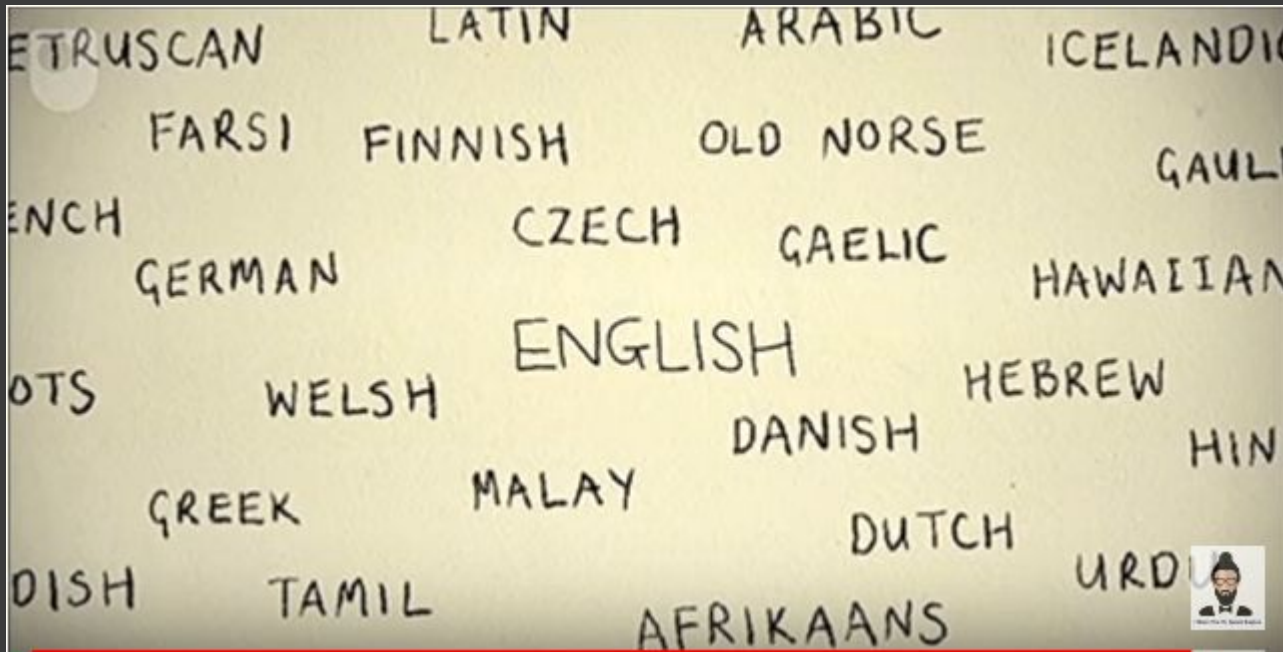 ETRUSCAN LATIN ARABIC ICELANDIC
FARSI FINNISH OLD NORSE GAULI
ENCH CZECH GAELIC
GERMAN HAWAIIAN
ENGLISH
OTS WELSH HEBREW
DANISH HIN
GREEK MALAY
DUTCH
DISH TAMIL URDU
AFRIKAANS